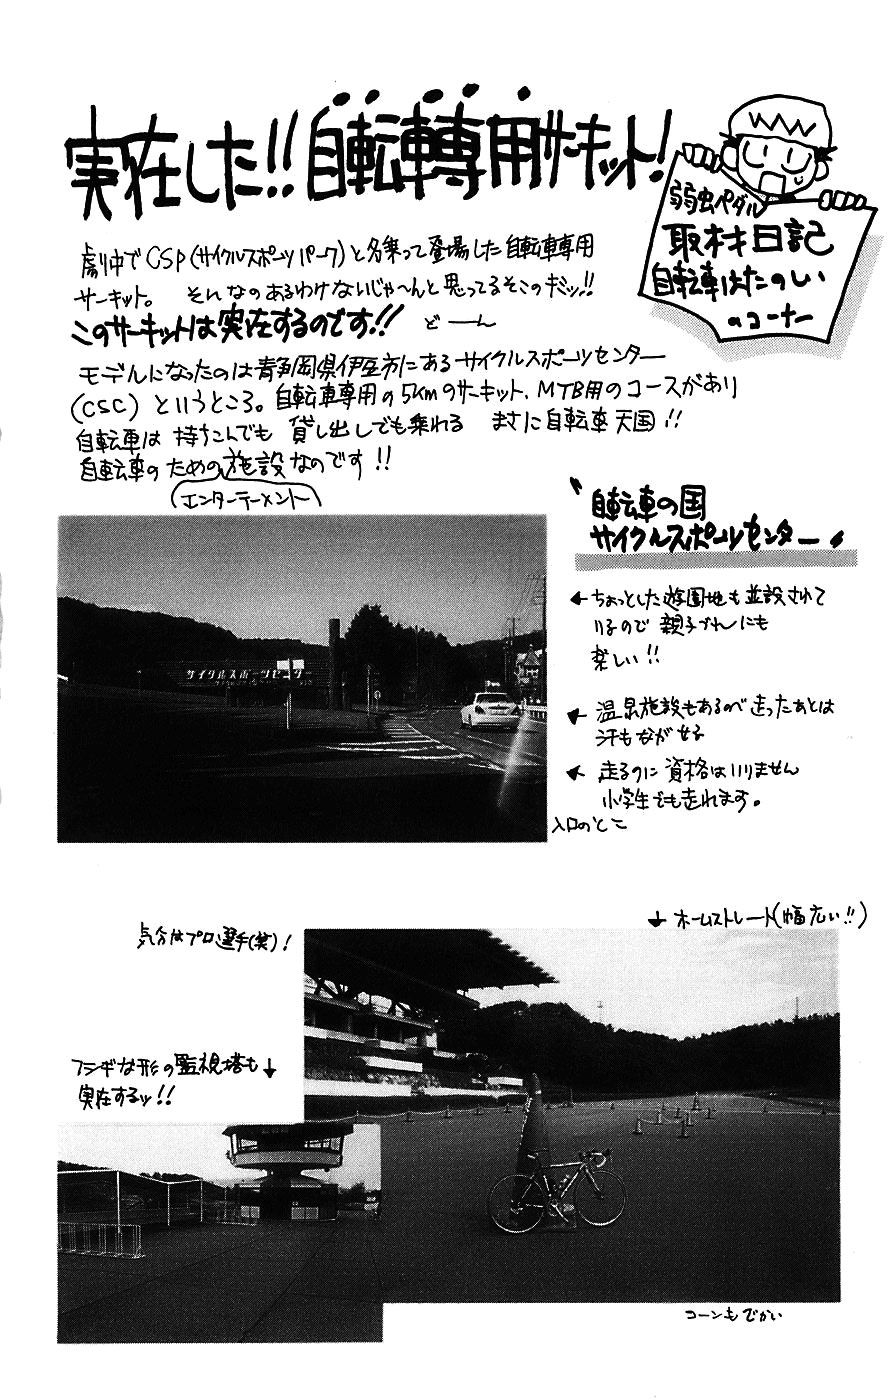 実在した!!自転車専用サーキット!
弱虫ペダル
取材日記
自転車はたのしい
のコーナー
劇中でCSP(サイクルスポーツパーク)と名乗って登場した自転車専用
サーキット。 そんなのあるわけないじゃ〜んと思ってるそこのキミッ!!
このサーキットは実在するのです!! どーん
モデルになったのは静岡県伊豆市にあるサイクルスポーツセンター
(CSC)というところ。自転車専用の5kmのサーキット、MTB用のコースがあり
自転車は 持ちこんでも 貸し出しでも乗れる まさに自転車天国!!
自転車のための施設なのです!!
(エンターテーメント)
〝自転車の国
サイクルスポーツセンター〟
←ちょっとした遊園地も並設されて
いるので 親子づれにも
楽しい!!
←温泉施設もあるので走ったあとは
汗もながせる
←走るのに資格はいりません
小学生でも走れます。
入口のとこ
サイクルスポーツセンター
↓ホームストレート(幅広い!!)
気分はプロ選手(笑)!
フシギな形の監視塔も↓
実在するッ!!
コーンもでかい